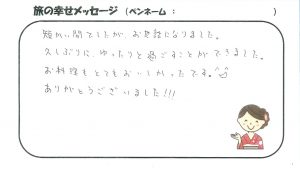 旅の幸せメッセージ（ペンネーム：　　　　）
短かい間でしたが、お世話になりました。
久しぶりに、ゆったりと過ごすことができました。
お料理もとてもおいしかったです。^^
ありがとうございました!!!